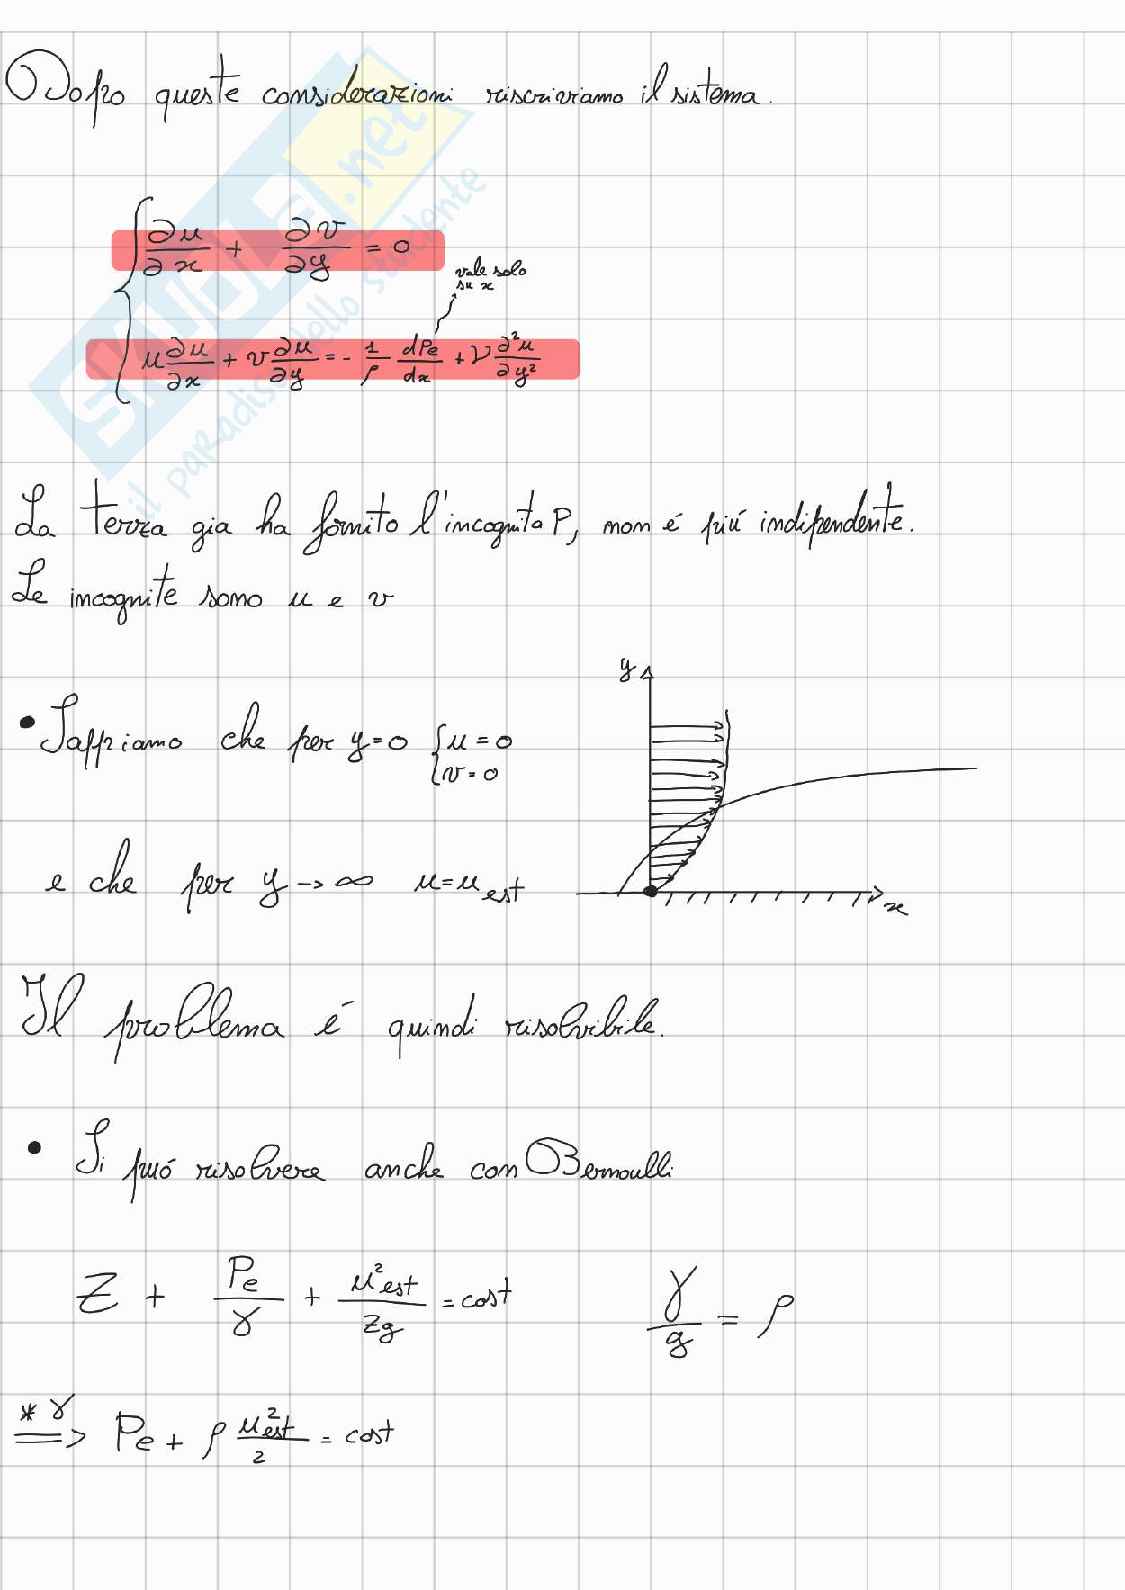 Dopo queste considerazioni riscriviamo il sistema.
∂u/∂x + ∂v/∂y = 0
vale solo
su x
u ∂u/∂x + v ∂u/∂y = - 1/ρ dPe/dx + ν ∂²u/∂y²
La terza gia ha fornito l'incognita P, non é piú indipendente.
Le incognite sono u e v
y
• Sappiamo che per y=0 { u = 0
v = 0
e che per y → ∞ u = u est
x
Il problema é quindi risolvibile.
• Si puó risolvere anche con Bernoulli
Z + Pe/γ + u²est/2g = cost γ/g = ρ
*γ ⇒ Pe + ρ u²est/2 = cost
SKUOLA.net
il paradiso dello studente